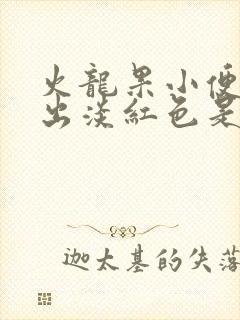 火龍果小便
出淡紅色是
迦太基的失落